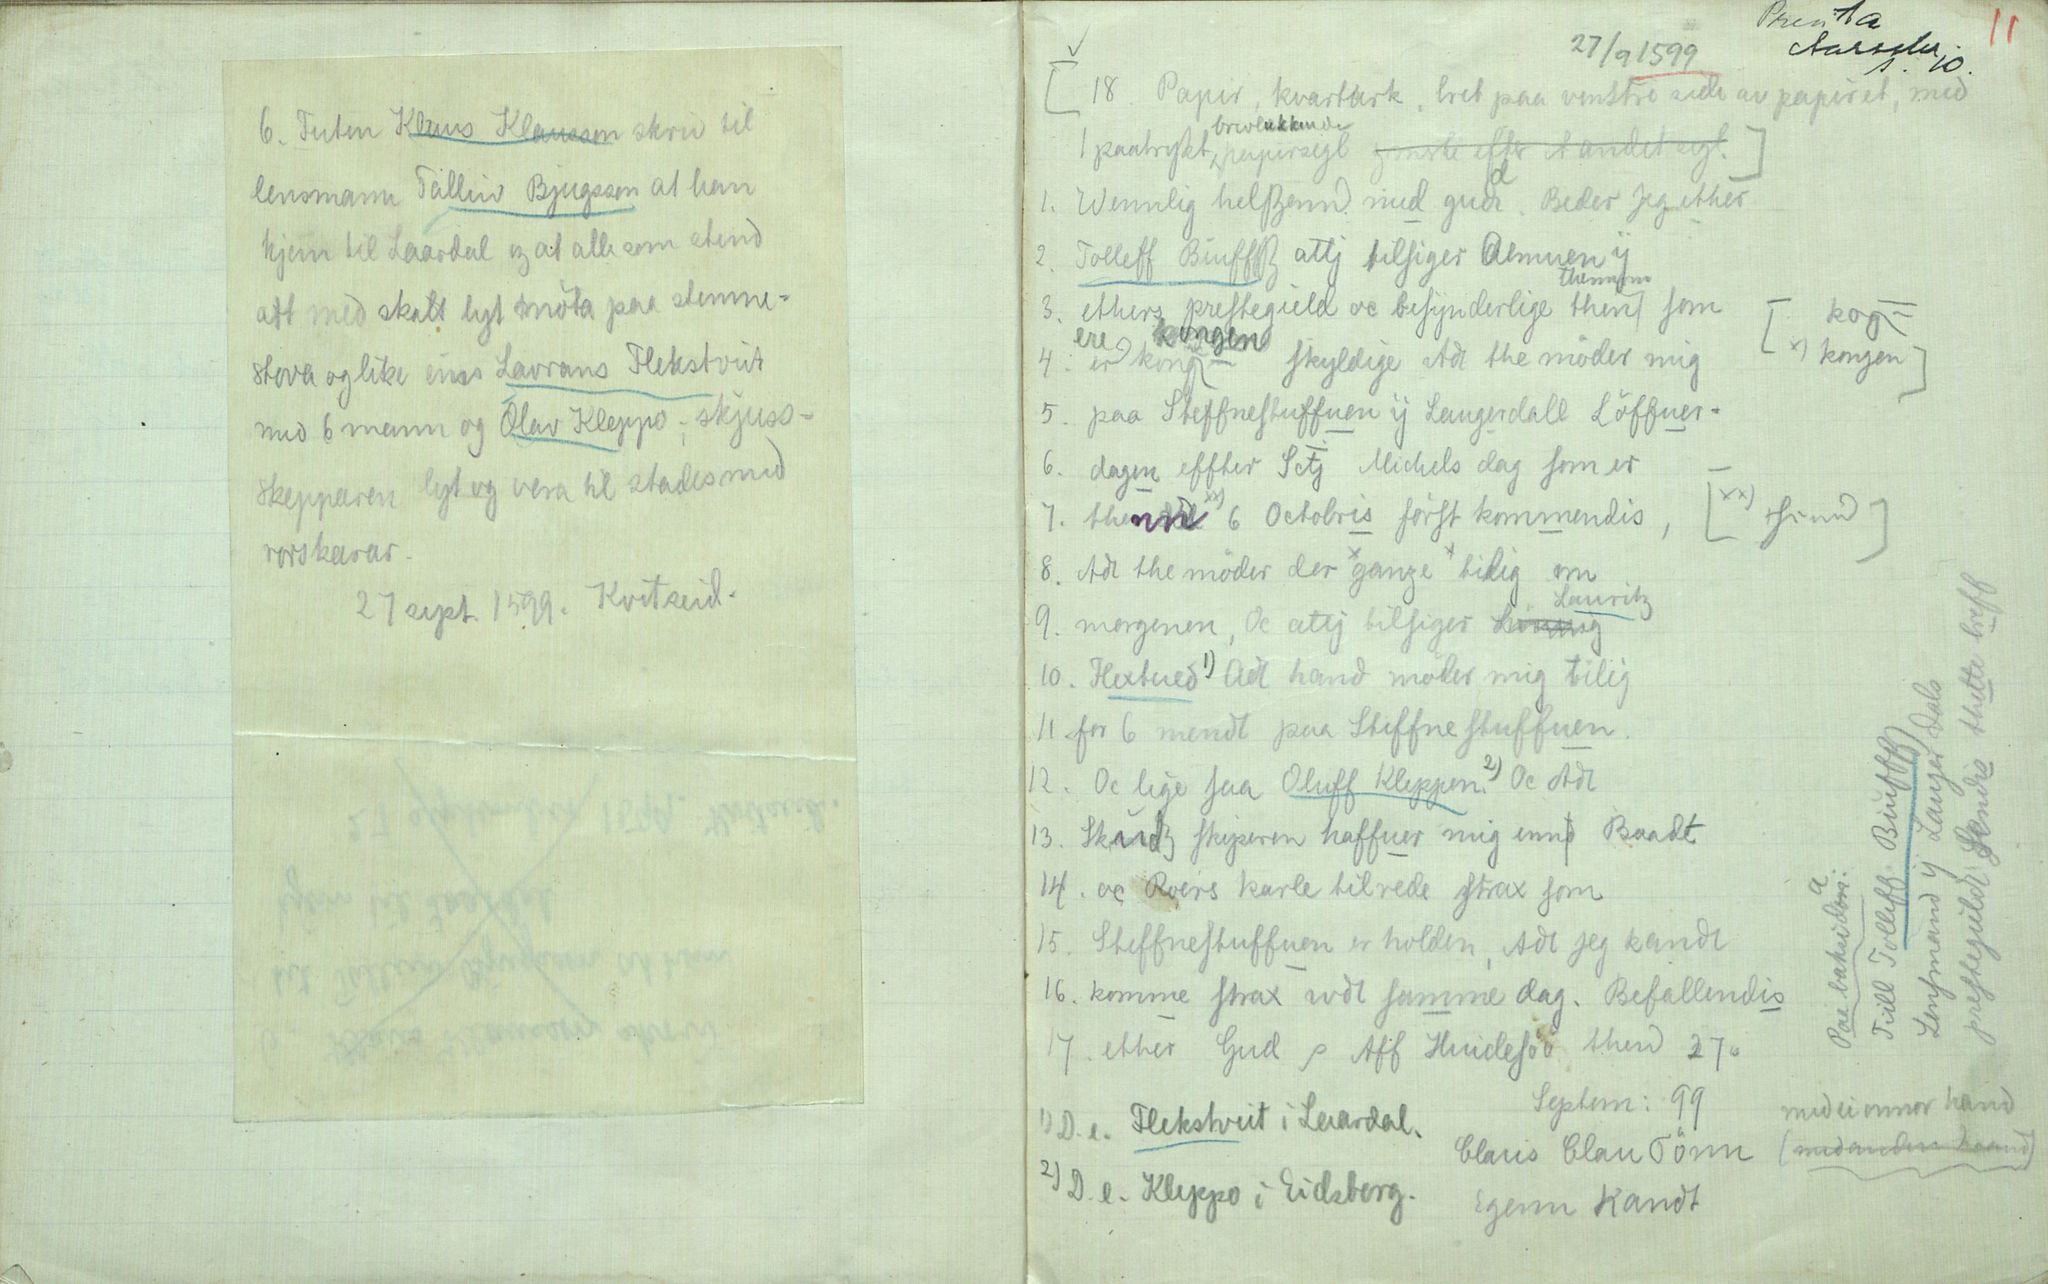 6. Futen Klaus Klausson skreiv til
lensmann Talleiv Bjugsson at han
kjem til Laardal og at alle som stend
att med skatt lyt møta paa stemne-
stova og like eins Lavrans Flekstveit
med 6 mann og Olav Kleppo; skjuss-
skepparen lyt og vera til stades med
rorskarar.
27 sept. 1599. Kvitseid.
Prenta
Aarsskr.
s. 10.
11
27/9 1599
[ 18. Papir, kvartark, bret paa venstre side av papiret, med
brevlukkende
1 paatrykt, papirsegl grønt efter et andet segl. ]
1. Wennlig helßenn med gudt. Beder Jeg ether
2. Tolleff Biuffß attj tilsiger Almuen ÿ
themom
3. ethers prestegield oc besÿnderlige them som
ere kongen
4. er kong skyldige Adt the møder mig
[ kog
x) kongen ]
5. paa Steffnestuffuen ÿ Laugerdall Löffuer-
6. dagen effter Sctj Michels dag som er
7. thenn xx) 6 Octobris først kommendis,
8. Adt the møder der gange tidig om
Lauritz
9. morgenen, Oc attj tilsiger
10. Flextued 1) Adt hand møder mig tilig
11. for 6 mendt paa Steffnestuffuen.
12. Oc lige saa Oluff Kleppen. 2) Oc Adt
13. Skudz skiperen haffuer mig enn Baadt
14. oc Roers karle tilrede strax som
15. Steffnestuffuen er holden, Adt jeg kandt
16. komme strax udt samme dag. Befallendis
17. ether Gud Aff Huidesøø then 27.
Septem: 99
Claus Clau Sönn
Egenn Handt
1) D. e. Flekstveit i Laardal.
2) D. e. Kleppo i Eidsborg.
Paa baksidom:
Till Tolleff Biuffß
Lensmand ÿ Laugerdals
prestegieldt Sendis thette breff
med ei onnor hand
(med anden haand)